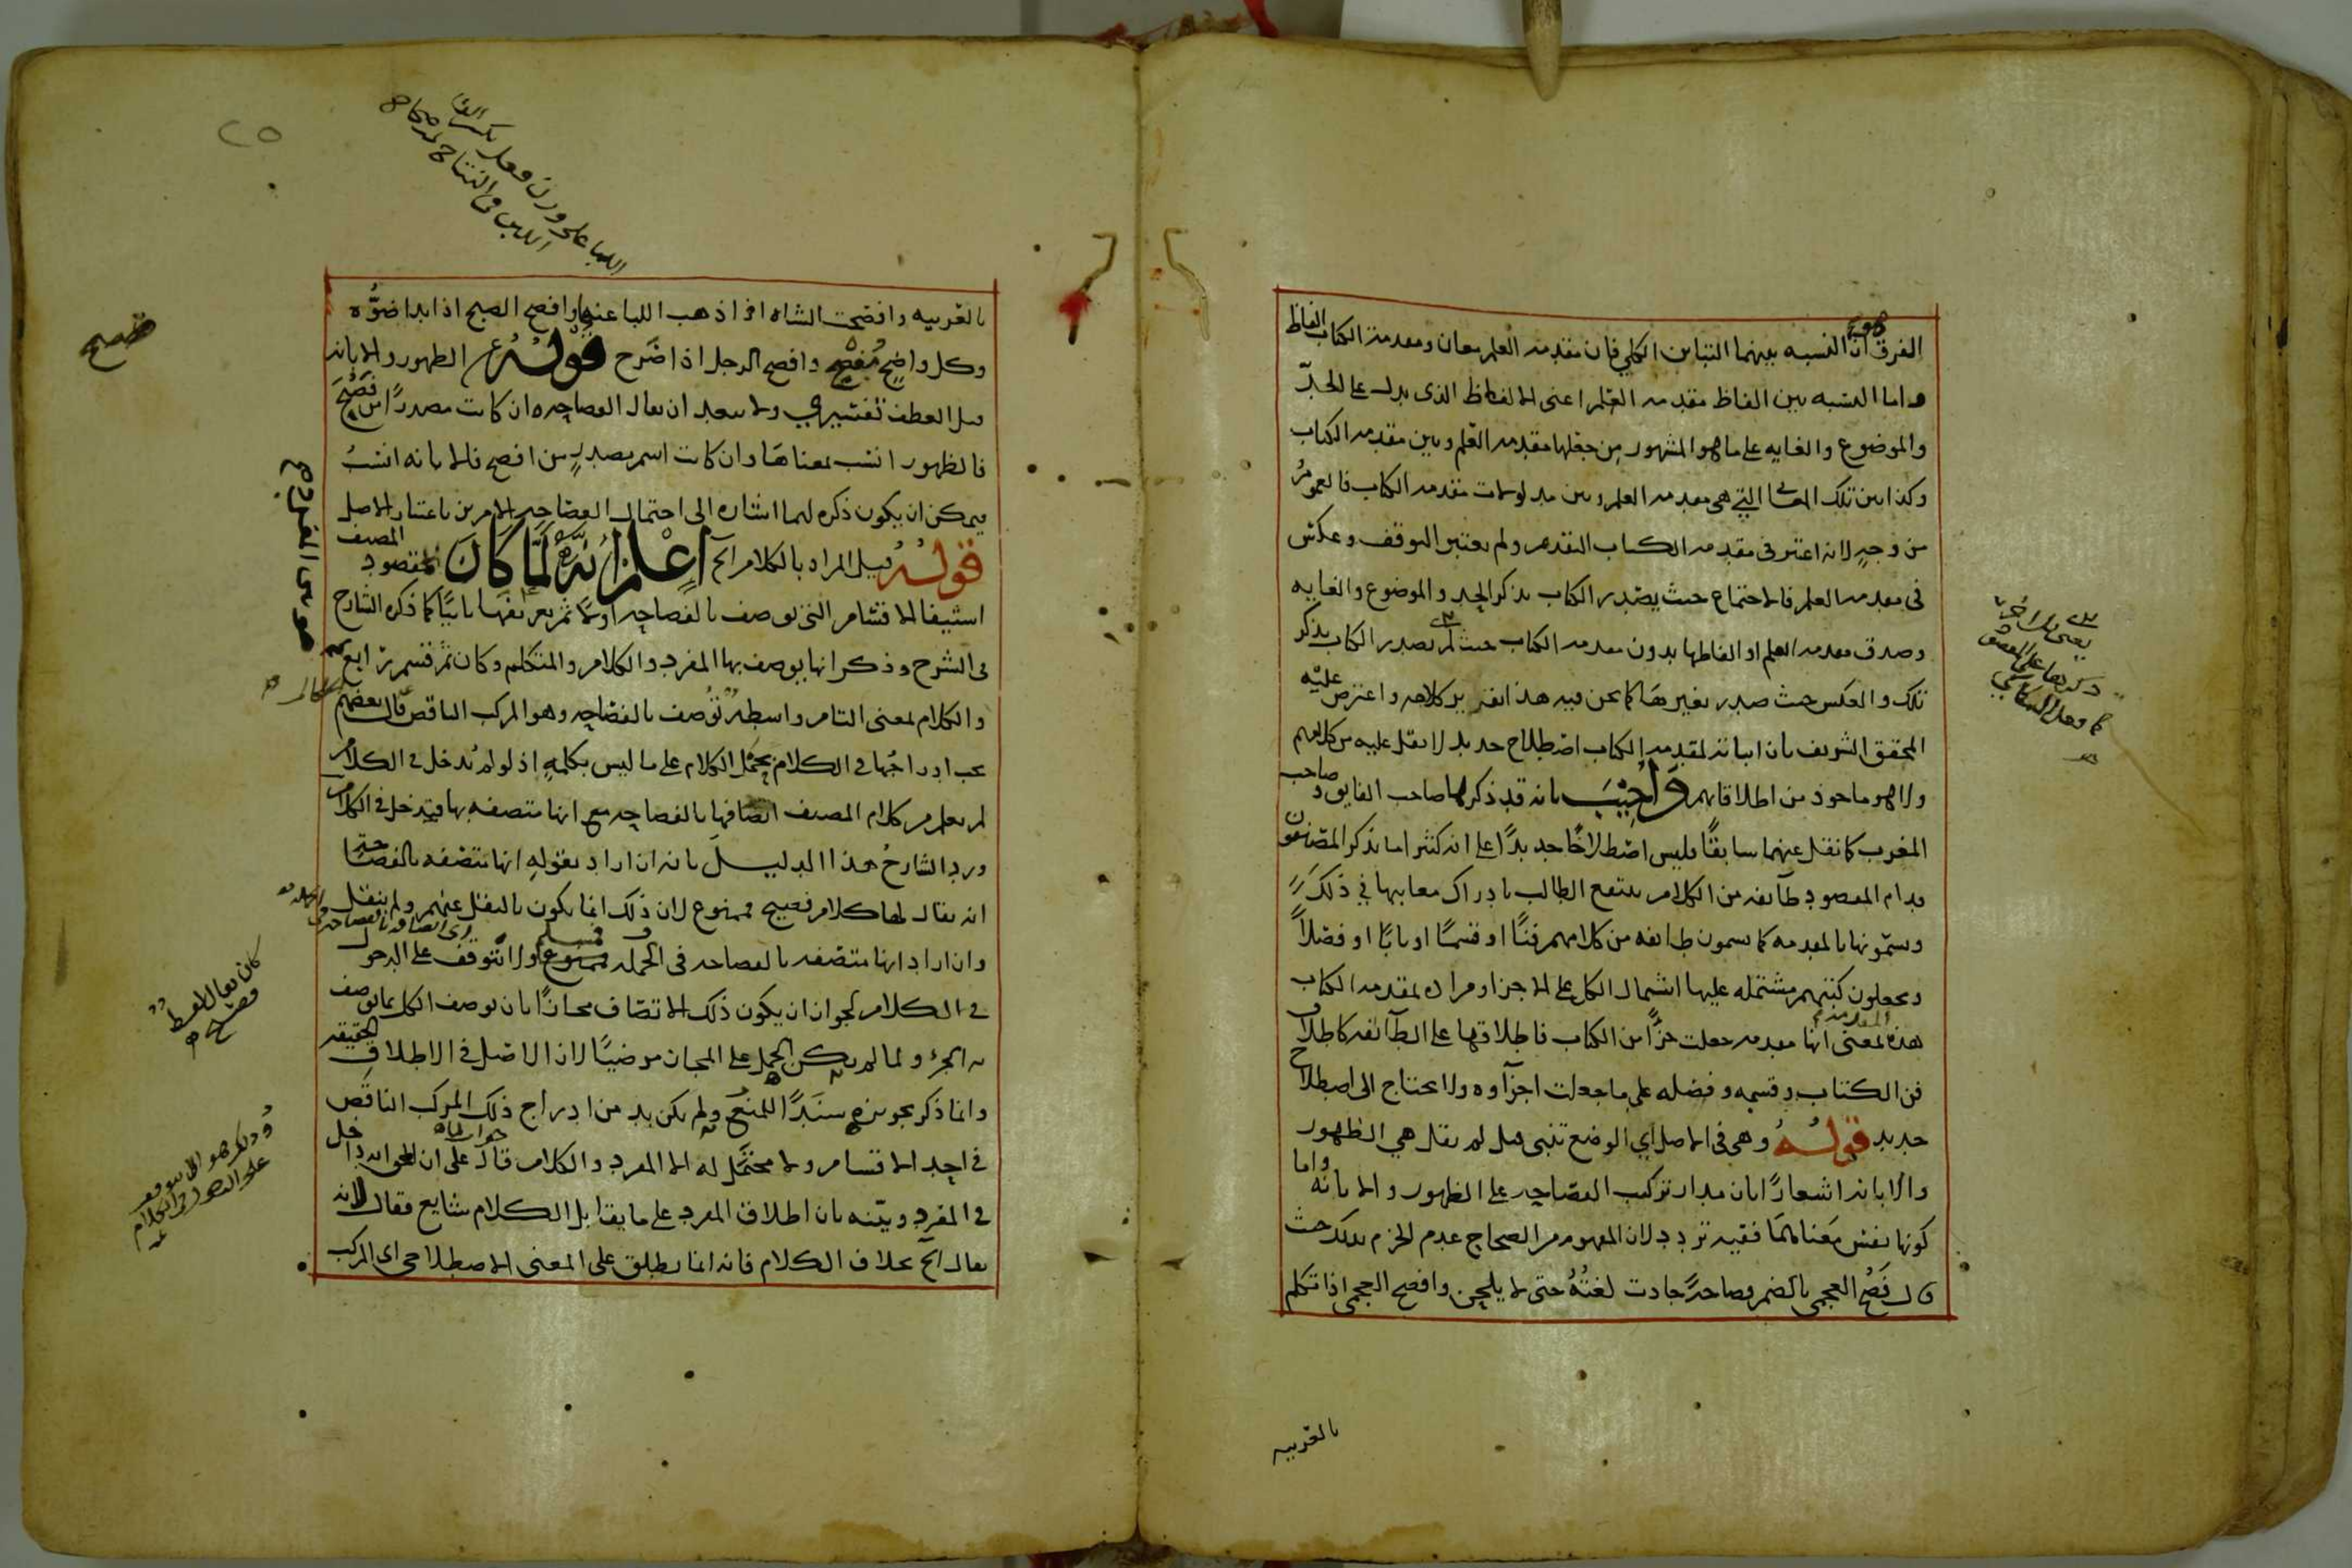 الفرق ان النسبه بينهما التباين الكلي فان مقدمه العلم معان ومقدمة الكتاب الفاظ
واما النسبه بين الفاظ مقدمه العلم اعنى الالفاظ الذى يدل على الحدّ
والموضوع والغايه على ماهو المشهور من جعلها مقدمه العلم وبين مقدمه الكتاب
وكذا بين تلك المعانى التي هى مقدمه العلم وبين مدلولات مقدمه الكتاب فالعمومُ
من وجهٍ لانه اعتبر فى مقدمه الكتاب التقدم ولم يعتبر التوقف وعكس
فى مقدمه العلم فالاجتماع حيث يصدر الكتاب بذكر الحد والموضوع والغايه
وصدق مقدمه العلم او الفاظها بدون مقدمه الكتاب حيث لم يصدر الكتاب بذكر
تلك والعكس حيث صدر بغيرها كما نحن فيه هذا تقرير كلامه واعترض عليه
المحقق الشريف بان اثباته لمقدمه الكتاب اصطلاح جديد لا نقل عليه من كلامهم
ولا هو ماخوذ من اطلاقاتهم وَاُجِيْبَ بانه قد ذكرها صاحب الفايق وصاحب
المغرب كما نقل عنهما سابقًا فليس اصطلاحًا جديدًا على انه كثيرا ما يذكر المصنفون
قدام المقصود طآئفه من الكلام ينتفع الطالب بادراك معانيها في ذلك
ويسمّونها بالمقدمه كما يسمون طائفه من كلامهم فنًّا او قسمًا او بابًا او فصلاً
ويجعلون كتبهم مشتمله عليها اشتمال الكل على الاجزا ومراده بمقدمه الكتاب
هذه المقدمة لمعنى انها مقدمه جعلت جزًا من الكتاب فاطلاقها على الطآئفه كاطلاق
فن الكتاب وقسمه وفصله على ما جعلت اجزآوه ولا يحتاج الى اصطلاح
جديد قولُهُ وهى فى الاصل اي الوضع تنبى قيل لم يقل هي الظهور
والابانه اشعارًا بان مدار تركيب الفصاحه على الظهور والابانه واما
كونها نفس معناها ففيه تردد لان المفهوم من الصحاح عدم الجزم بذلك حيث
قال فَصُح العجمى بالضم فصاحةً جادت لغتُهُ حتى لا يلحن وافصح العجمى اذا تكلم
بالعربيه
بالعربيه وافصحت الشاه اذا ذهب اللبا عنها وافصح الصبح اذا بدا ضوُّه
وكل واضحٍ مُفصِح وافصح الرجل اذا صَرح قولُهُ الظهور والابانه
قيل العطف تفسيري ولا يبعد ان يقال الفصاحه ان كانت مصدرًا من فَصُحَ
فالظهور انسب بمعناها وان كانت اسم مصدرٍ من افصح فالابانه انسبُ
فيمكن ان يكون ذكره لهما اشاره الى احتمال الفصاحه الامرين باعتبار الاصل
قولُهُ قيل المراد بالكلام الخ اعْلَمْ اَنَّهُ لَمَّا كَانَ المقصود المصنف
استيفا الاقسام التى توصف بالفصاحه اولًا ثم تعريفها ثانيًا كما ذكره الشارح
فى الشرح وذكر انها يوصف بها المفرد والكلام والمتكلم وكان ثم قسم رابع
والكلام لمعنى التام واسطهٌ تُوصف بالفصاحه وهو المركب الناقص قال بعضهم
يجب ادراجُها في الكلام بحمل الكلام على ما ليس بكلمهٍ اذ لو لم تُدخل في الكلام
لم يعلم من كلام المصنف اتصافها بالفصاحه مع انها متصفه بها فتدخل في الكلام
ورد الشارحُ هذا الدليلَ بانه ان اراد بقولهِ انها متصفه بالفصاحة
انه يقال لها كلام فصيح فممنوع لان ذلك انما يكون بالنقل عنهم ولم ينقل
وان اراد انها متصفه بالفصاحه فى الجمله فمسلم ولا تتوقف على الدخول
في الكلام لجواز ان يكون ذلك الاتصاف مجازًا بان يوصف الكل بما يوصف
به الجزء ولما لم يكن الحمل على المجاز مرضيًا لان الاصل في الاطلاق الحقيقه
وانما ذكر تجويزه سنَدًا للمنع ولم يكن بد من ادراج ذلك المركب الناقص
في احد الاقسام ولا محتمل له الا المفرد والكلام قال على ان الحق انه داخل
في المفرد وبيّنه بان اطلاق المفرد على ما يقابل الكلام شايع فقال لانه
يقال الخ بخلاف الكلام فانه انما يطلق على المعنى الاصطلاحى اى المركب
اللبا على وزن فعل بكسر الفا
فصيح
كان يقال لفظ
فصيح